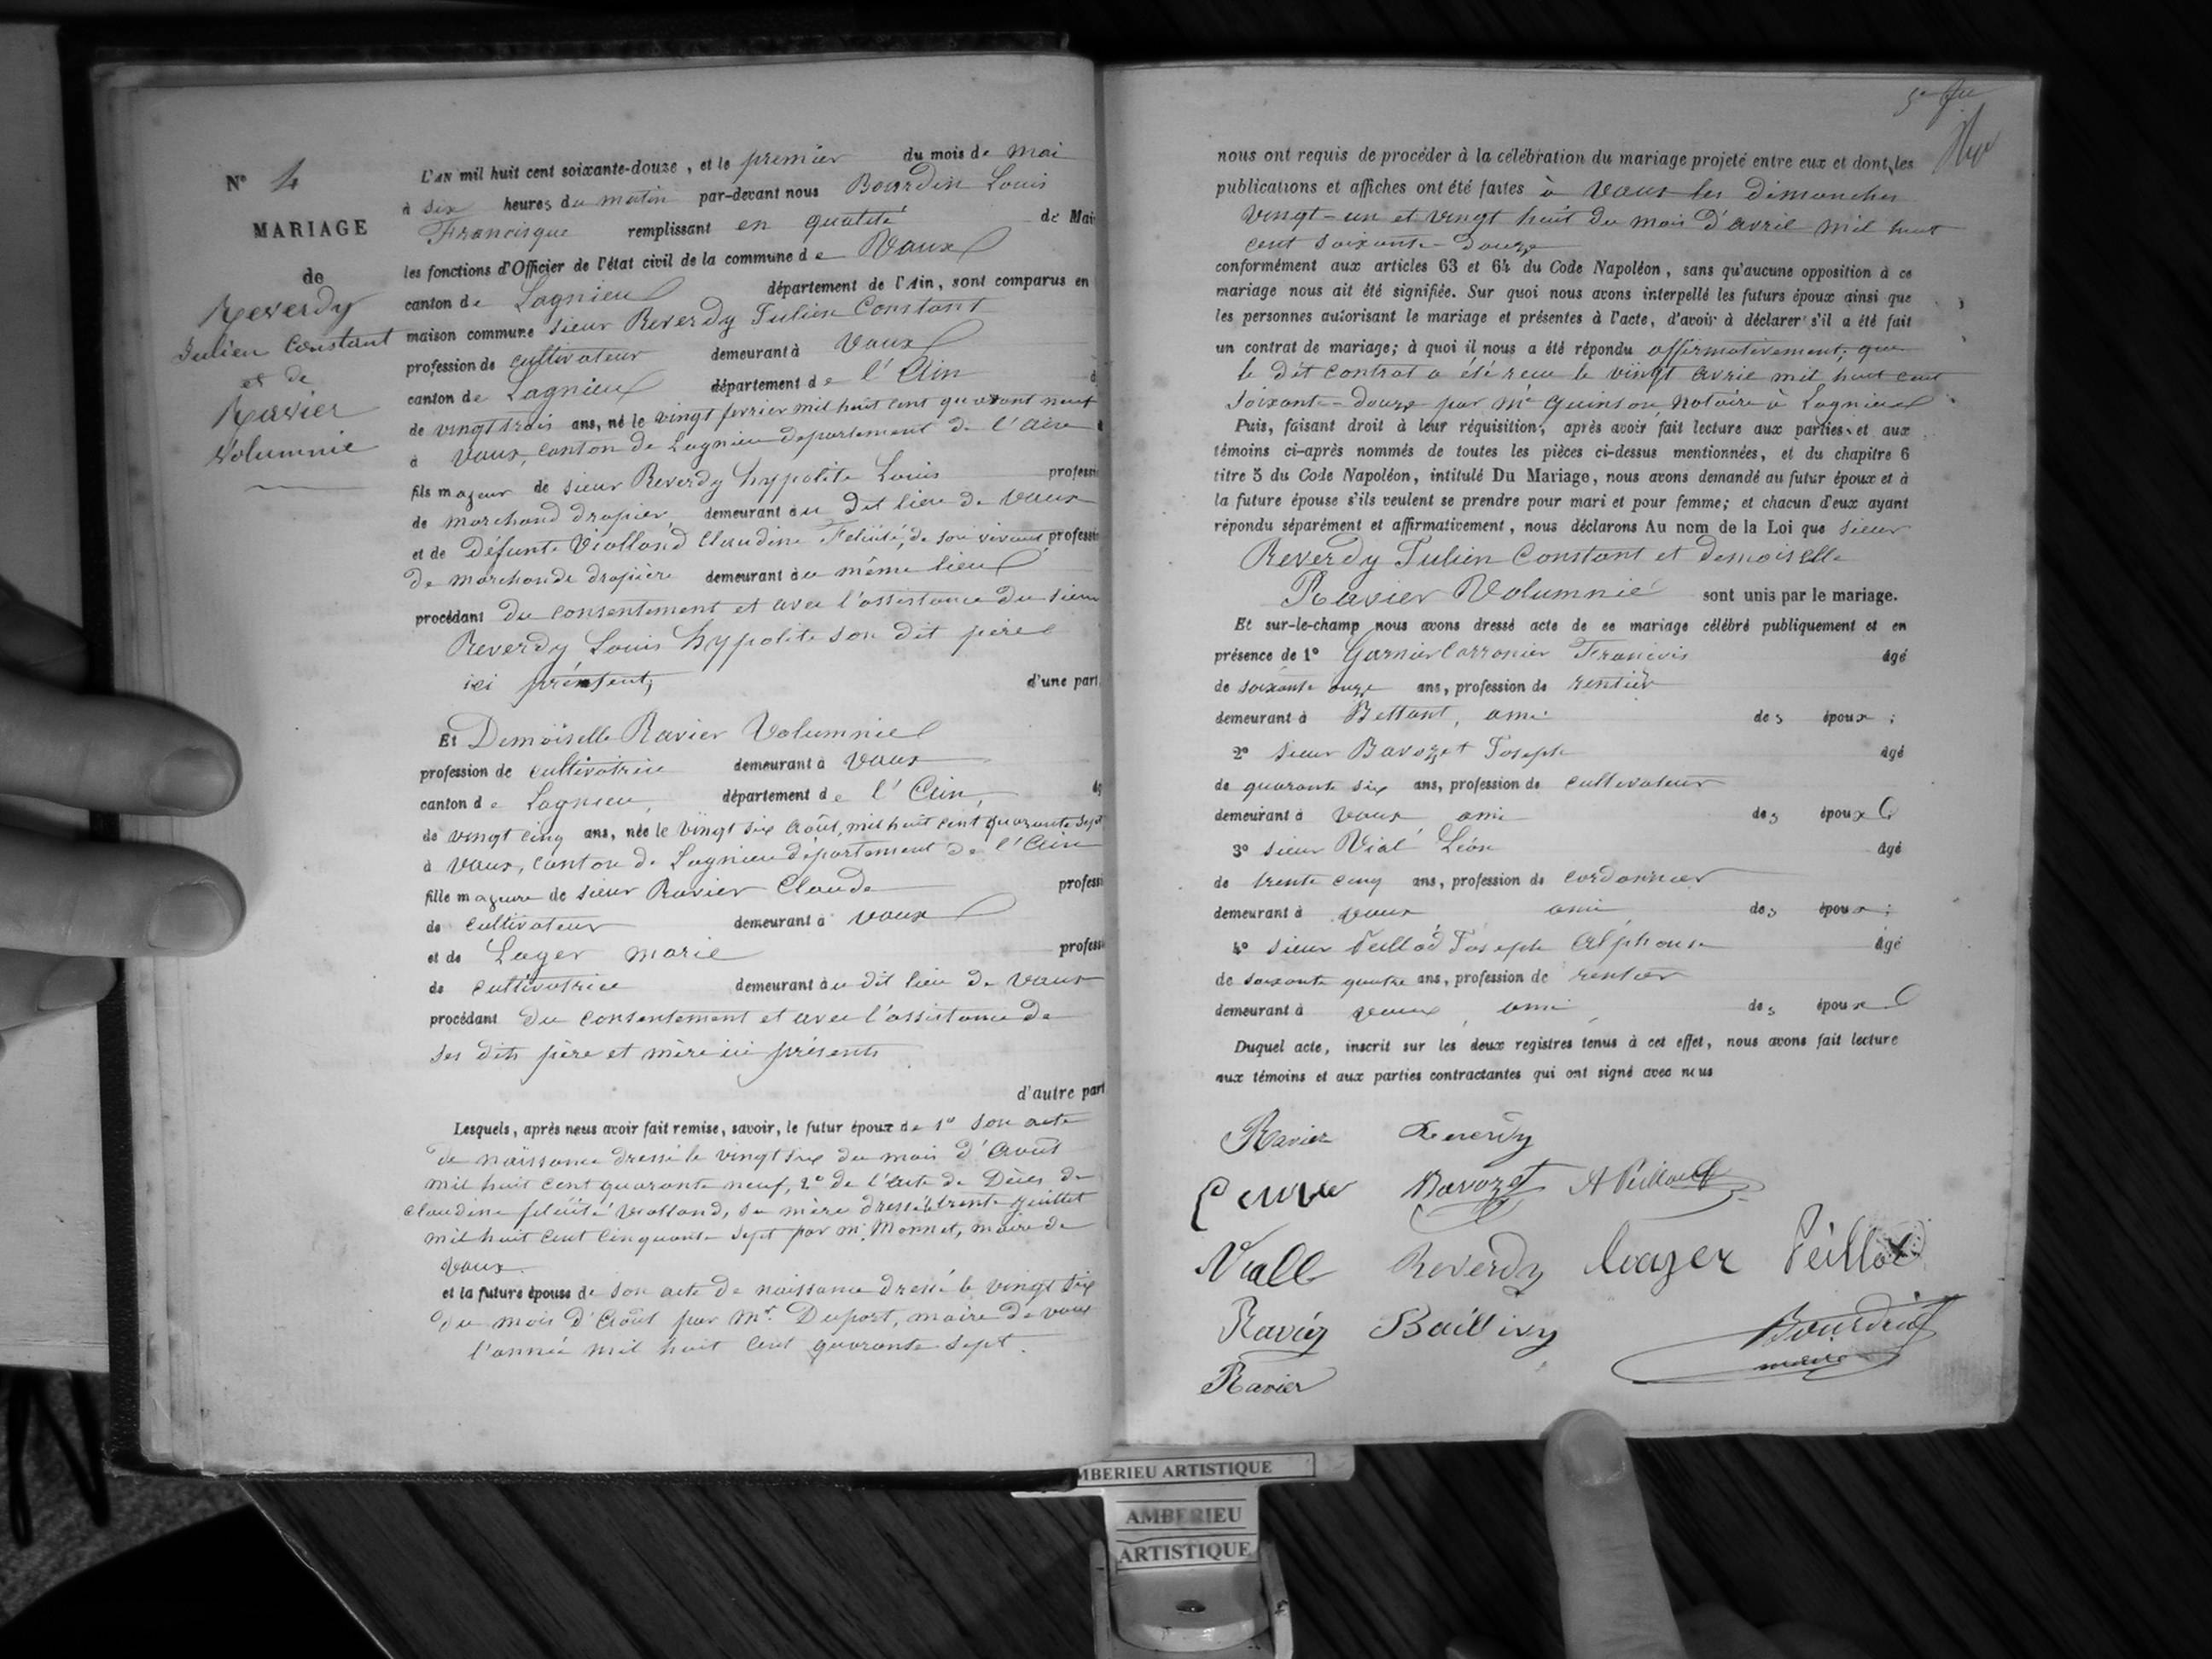 N° 4
MARIAGE
de
Reverdy
Julien Constant
et de
Ravier
Volumnie
L'AN mil huit cent soixante-douze, et le premier du mois de mai
à six heures du matin par-devant nous Bourdin Louis
Francisque remplissant en qualité de Mai
les fonctions d'Officier de l'état civil de la commune de Vaux
canton de Lagnieu département de l'Ain, sont comparus en
maison commune sieur Reverdy Julien Constant
profession de cultivateur demeurant à Vaux
canton de Lagnieu département de l'Ain
de vingt trois ans, né le vingt fevrier mil huit cent quarant neuf
à Vaux, canton de Lagnieu departement de l'Ain
fils majeur de sieur Reverdy hypolite Louis professi
de marchand drapier demeurant au dit lieu de Vaux
et de défunte Violland Claudine Félicité, de son vivant professi
de marchande drapière demeurant au même lieu
procédant du consentement et avec l'assistance du sieur
Reverdy Louis hypolite son dit père
ici présent; d'une part
Et Demoiselle Ravier Volumnie
profession de cultivatrice demeurant à Vaux
canton de Lagnieu, département de l'Ain,
de vingt cinq ans, née le vingt six Août, mil huit cent quarante sept
à Vaux, canton de Lagnieu département de l'Ain
fille majeure de sieur Ravier Claude professi
de cultivateur demeurant à Vaux
et de Lager marie professi
de cultivatrice demeurant au dit lieu de Vaux
procédant du consentement et avec l'assistance de
ses dits père et mère ici présents
d'autre part
Lesquels, après nous avoir fait remise, savoir, le futur époux de 1° son acte
de naissance dressé le vingt six du mois d'Août
mil huit cent quarante neuf, 2° de l'acte de Décès de
Claudine félicité Violland, sa mère dressé le trente juillet
mil huit cent cinquante sept par mr. Monnet, maire de
Vaux
et la future épouse de son acte de naissance dressé le vingt six
du mois d'Août par Mr. Duport, maire de Vaux
l'année mil huit cent quarante sept.
nous ont requis de procéder à la célébration du mariage projeté entre eux et dont les
publications et affiches ont été faites à Vaux les dimanches
vingt-un et vingt huit du mois d'avril mil huit
cent soixante-douze
conformément aux articles 63 et 64 du Code Napoléon, sans qu'aucune opposition à ce
mariage nous ait été signifiée. Sur quoi nous avons interpellé les futurs époux ainsi que
les personnes autorisant le mariage et présentes à l'acte, d'avoir à déclarer s'il a été fait
un contrat de mariage; à quoi il nous a été répondu affirmativement; que
le dit contrat a été recu le vingt avril mil huit cent
soixante-douze par Me Guinson, Notaire à Lagnieu
Puis, faisant droit à leur réquisition, après avoir fait lecture aux parties et aux
témoins ci-après nommés de toutes les pièces ci-dessus mentionnées, et du chapitre 6
titre 5 du Code Napoléon, intitulé Du Mariage, nous avons demandé au futur époux et à
la future épouse s'ils veulent se prendre pour mari et pour femme; et chacun d'eux ayant
répondu séparément et affirmativement, nous déclarons Au nom de la Loi que sieur
Reverdy Julien Constant et demoiselle
Ravier Volumnie sont unis par le mariage.
Et sur-le-champ nous avons dressé acte de ce mariage célébré publiquement et en
présence de 1° Garnier François âgé
de soixante onze ans, profession de rentier
demeurant à Bettant, ami des époux;
2° sieur Bavozet Joseph âgé
de quarante six ans, profession de cultivateur
demeurant à Vaux ami des époux
3° sieur Vial Léon âgé
de trente cinq ans, profession de cordonnier
demeurant à Vaux ami des époux;
4° sieur Peillod Joseph Alphonse âgé
de soixante quatre ans, profession de rentier
demeurant à Vaux, ami des époux
Duquel acte, inscrit sur les deux registres tenus à cet effet, nous avons fait lecture
aux témoins et aux parties contractantes qui ont signé avec nous
Ravier Reverdy
Bavozet A Peillod
Viall Reverdy Lager Peillod
Ravier Baillivy Bourdin
Ravier
AMBERIEU ARTISTIQUE
AMBERIEU
ARTISTIQUE